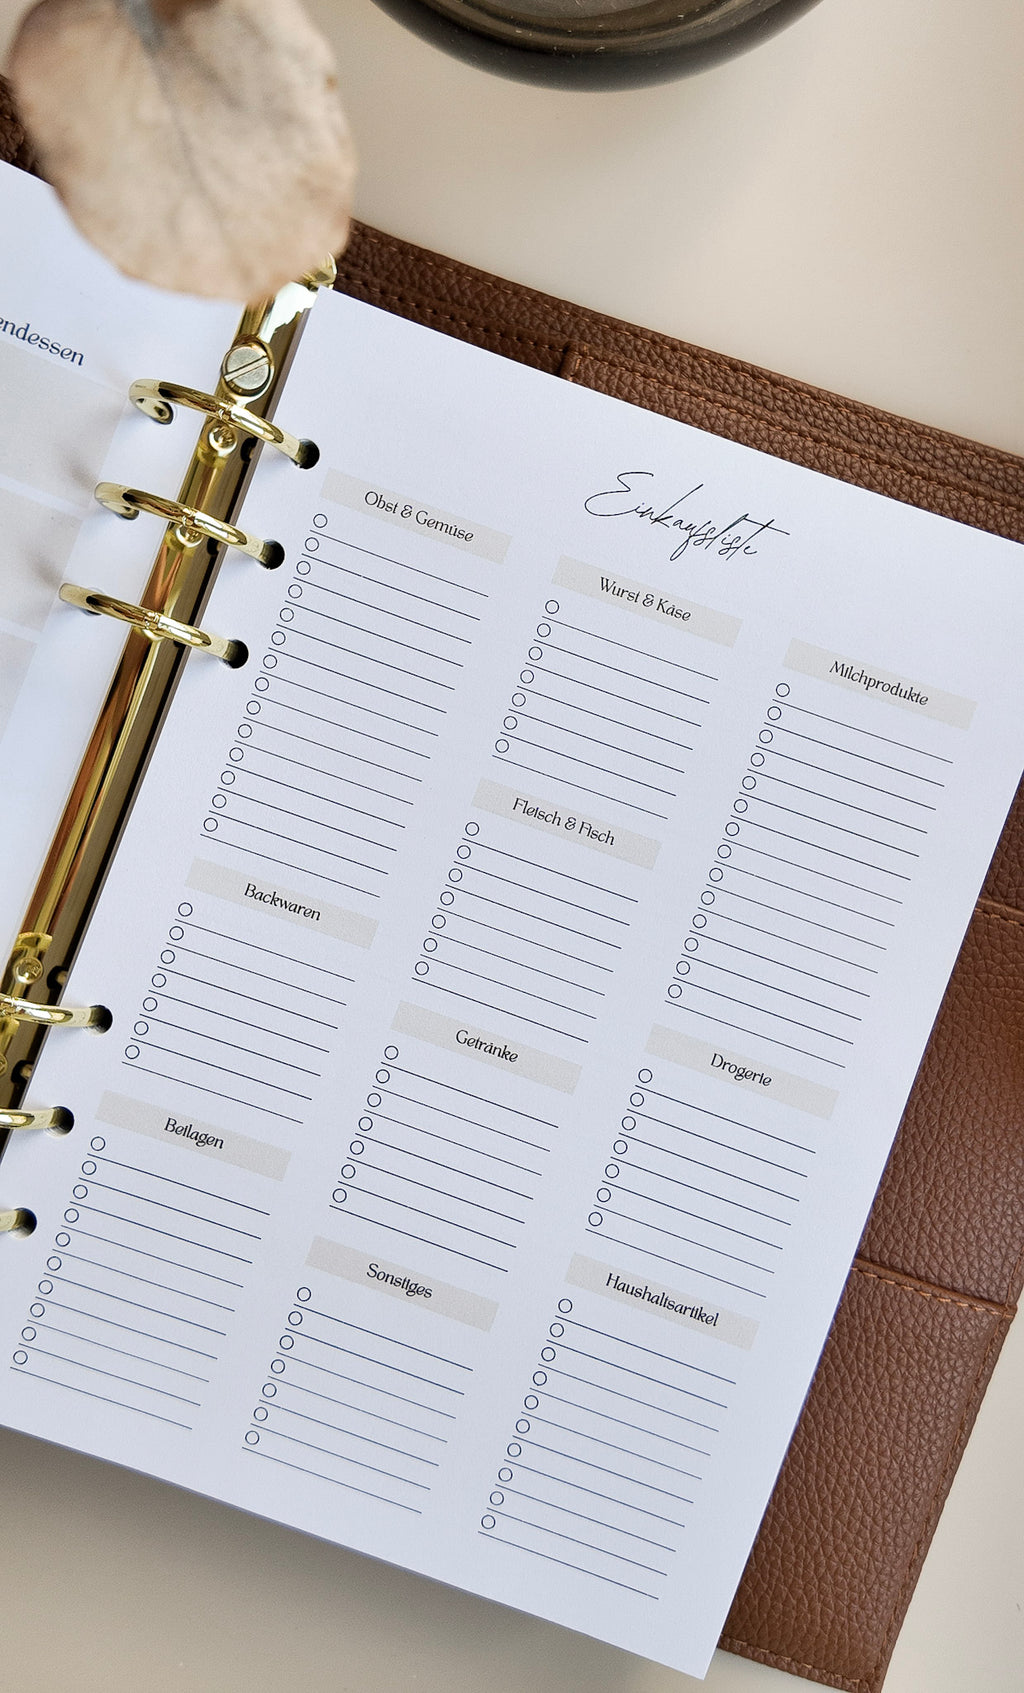 endessen
Einkaufsliste
Obst & Gemüse
Backwaren
Beilagen
Wurst & Käse
Fleisch & Fisch
Getränke
Sonstiges
Milchprodukte
Drogerie
Haushaltsartikel